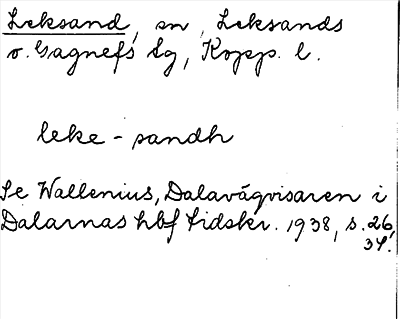 Leksand, sn, Leksands
o. Gagnefs tg, Kopp. l.
leke - sandh
Se Wallenius, Dalavägvisaren i
Dalarnas hbf tidskr. 1938, s. 26,
34.